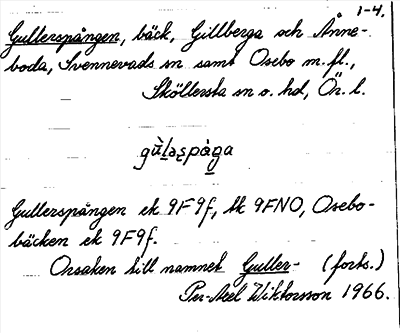 1-4.
Gullerspången, bäck, Gillberga och Ånne-
boda, Svennevads sn samt Osebo m.fl.,
Sköllersta sn o. hd, Ör. l.
Gullerspången ek 9F9f, tk 9FNO, Osebo-
bäcken ek 9F9f.
Orsaken till namnet Guller- (forts.)
Per-Axel Wiktorsson 1966.